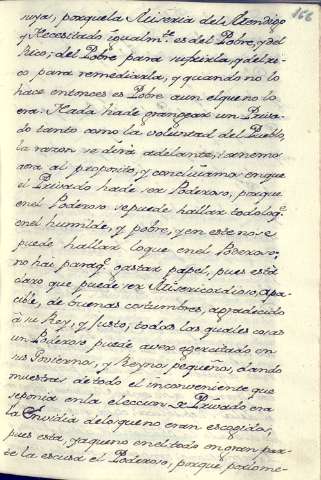 166
suya, porque la Miseria del Mendigo
y Necesitado igualmte. es del Pobre, y del
Rico; del Pobre para sufrirla, y del ri-
co para remediarla, y quando no lo
hace entonces es Pobre aun el que no lo
era. Nada ha de grangear un Priva-
do tanto como la voluntad del Pueblo,
la razon se dirà adelante, tornemos
aora al proposito, y concluiamos en que
el Privado ha de ser Poderoso, porque
en el Poderoso se puede hallar todo lo q.
en el humilde, y pobre, y en este no se
puede hallar lo que en el Poderoso,
no hai para q. gastar papel, pues està
claro que puede ser Misericordioso, apa-
cible, de buenas costumbres, agradecido
à su Rey, y Justo, todas las quales cosas
un Poderoso puede aver exercitado en
sus Goviernos, y Reynos pequeños, dando
muestras de todo el inconveniente que
se ponia en la eleccion de Privado era
la Envidia de los que no eran escogidos,
pues esta, ya que no en el todo en gran par-
te la escusa el Poderoso, porque